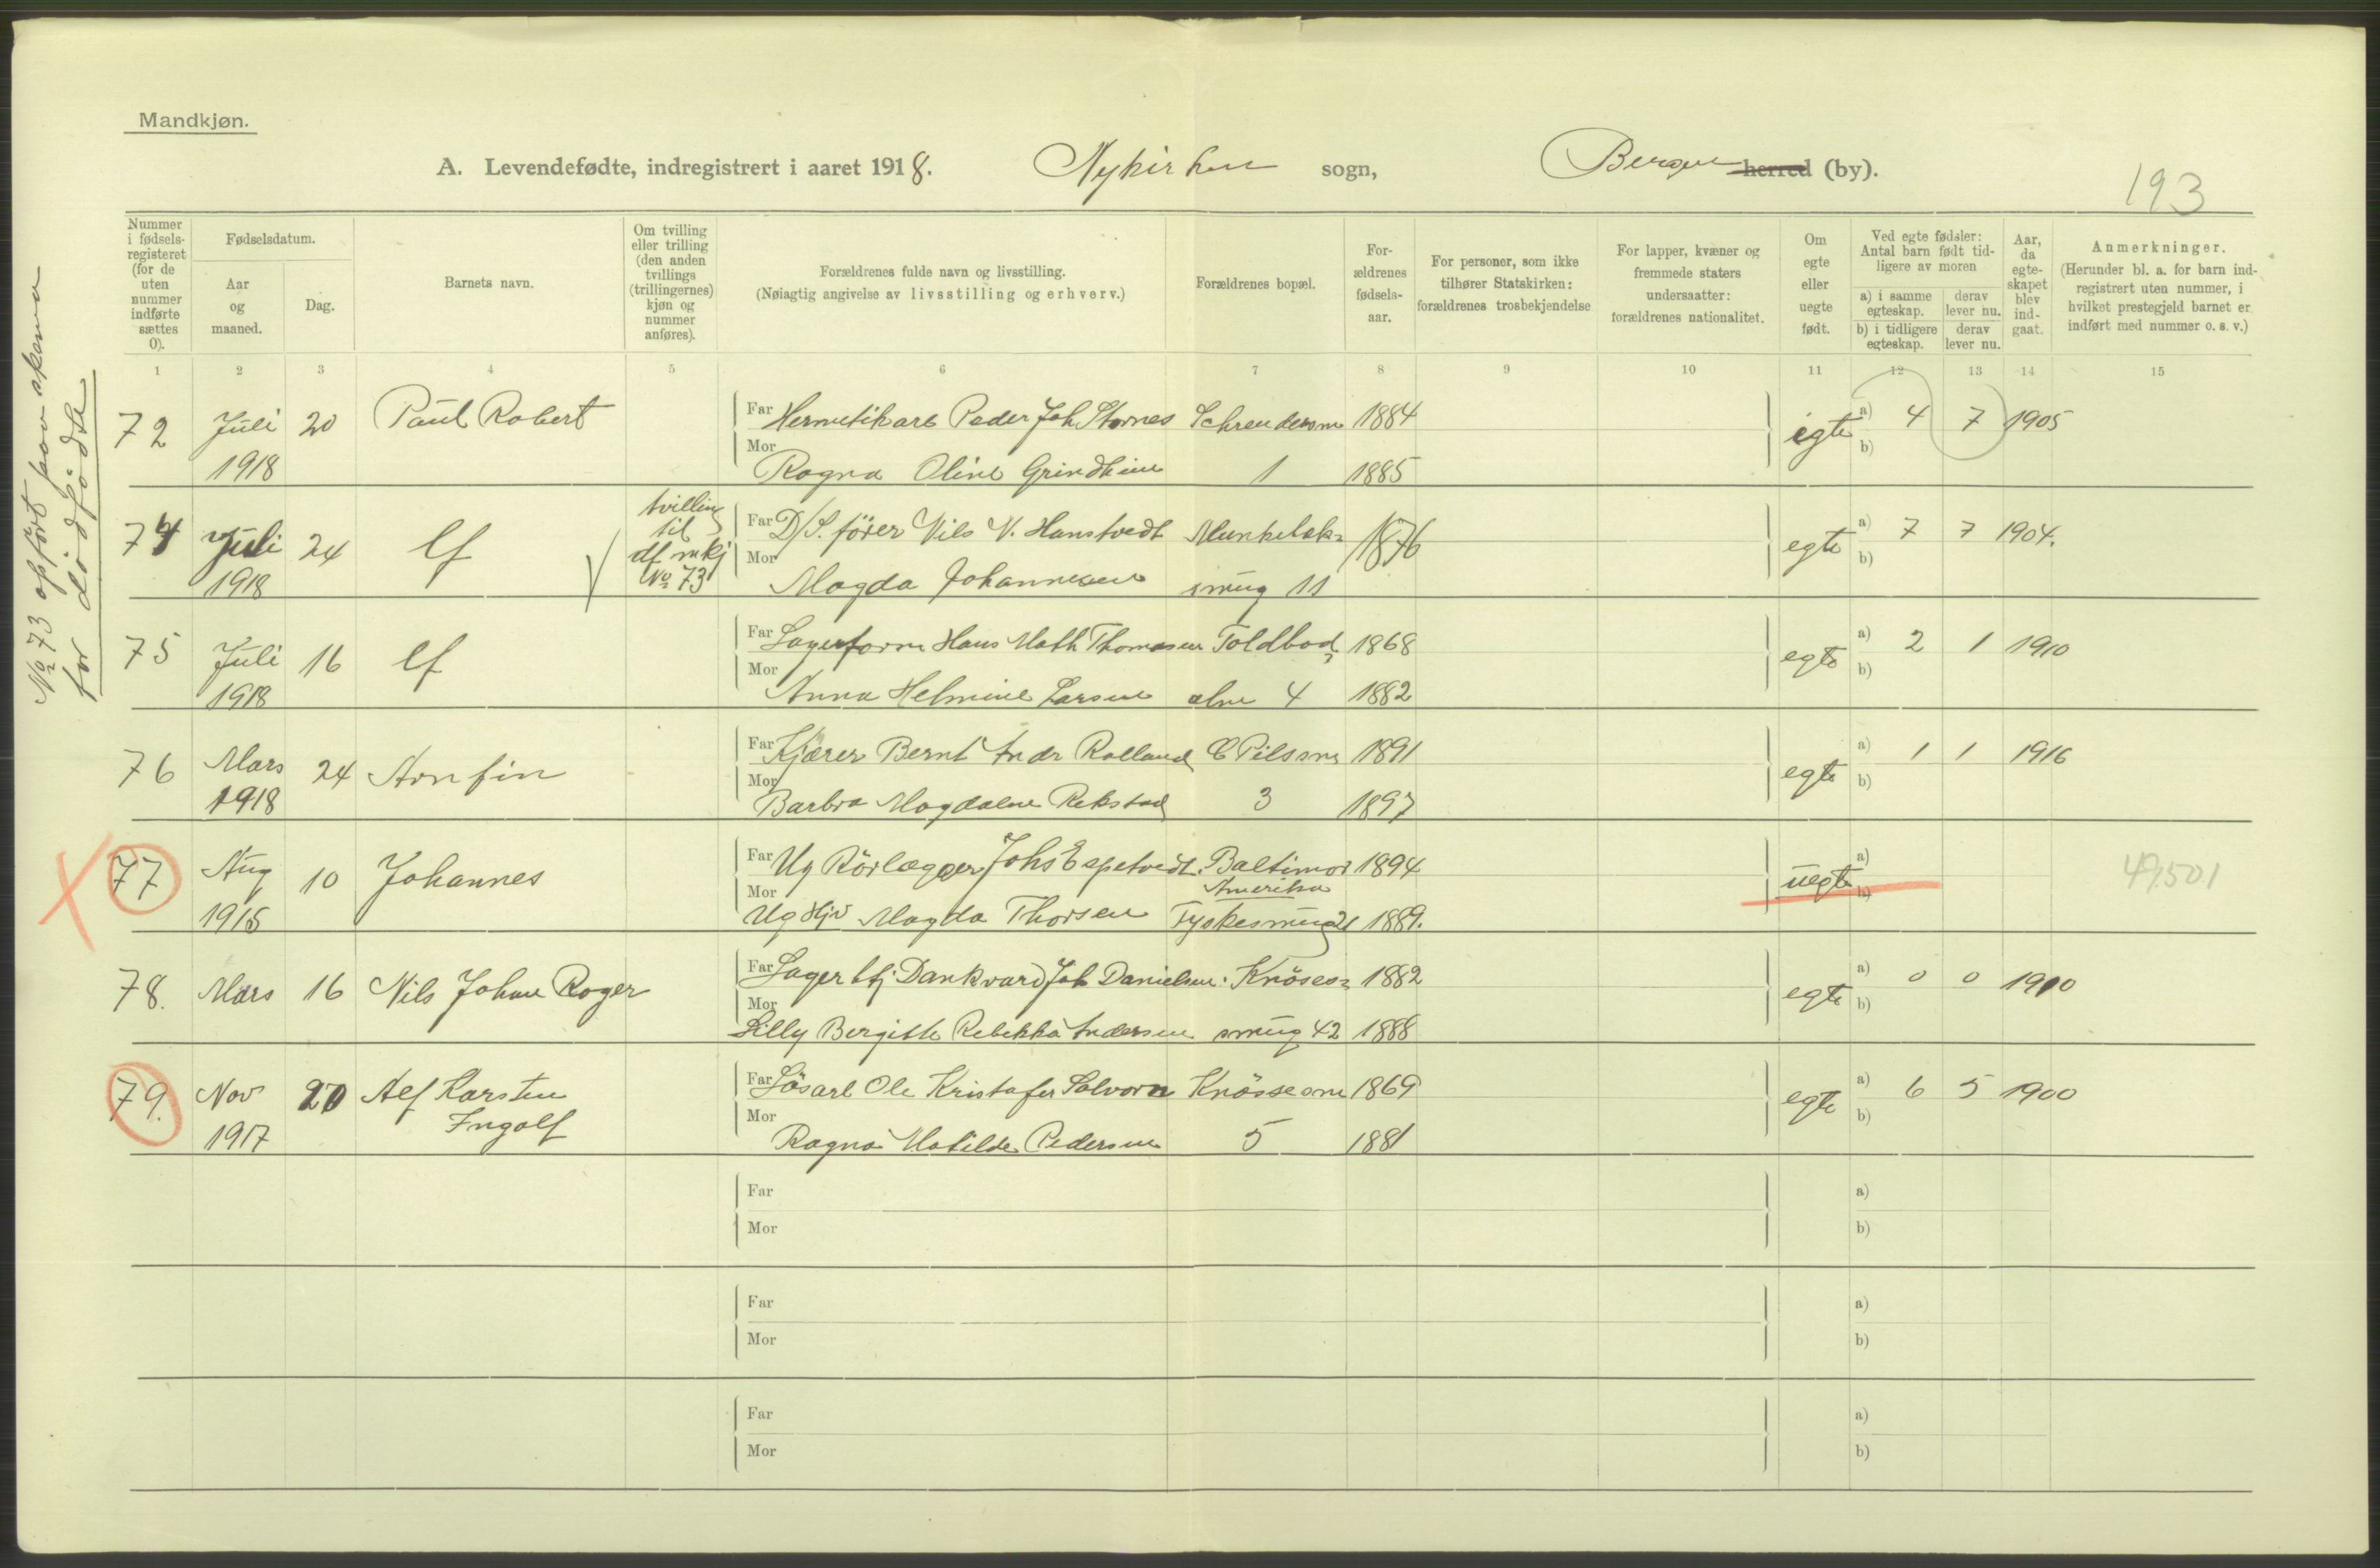 Mandkjøn.
A. Levendefødte, indregistrert i aaret 1918. Nykirken sogn, Bergen herred (by).
193
Nummer i fødsels-registeret (for de uten nummer indførte sættes 0).
Fødselsdatum.
Aar og maaned.
Dag.
Barnets navn.
Om tvilling eller trilling (den anden tvillings (trillingernes) kjøn og nummer anføres).
Forældrenes fulde navn og livsstilling.
(Nøiagtig angivelse av livsstilling og erhverv.)
Forældrenes bopæl.
For-ældrenes fødsels-aar.
For personer, som ikke tilhører Statskirken: forældrenes trosbekjendelse
For lapper, kvæner og fremmede staters undersaatter: forældrenes nationalitet.
Om egte eller uegte født.
Ved egte fødsler: Antal barn født tid-ligere av moren
a) i samme egteskap. derav lever nu.
b) i tidligere egteskap. derav lever nu.
Aar, da egte-skapet blev ind-gaat.
Anmerkninger.
(Herunder bl. a. for barn ind-registrert uten nummer, i hvilket prestegjeld barnet er indført med nummer o. s. v.)
1 2 3 4 5 6 7 8 9 10 11 12 13 14 15
No 73 opført paa skema
for dødfødte
72 Juli 20 Paul Robert Far Hermetikarb Peder Joh Stornes 1884 egte a) 4 7 1905
1918 Mor Ragna Oline Grindheim 1 1885 b)
74 Juli 24 lf tvilling til df mkj No 73 Far D/S. fører Nils N. Hanstvedt Munkebek= 1876 egte a) 7 7 1904.
1918 Mor Magda Johannesen smug 11 b)
75 Juli 16 lf Far Lagerform Hans Math Thomasen Toldbod= 1868 egte a) 2 1 1910
1918 Mor Anna Helmine Larsen alm 4 1882 b)
76 Mars 24 Arnfin Far Kjører Bernt Andr Rolland C Pilsm 1891 egte a) 1 1 1916
1918 Mor Barbra Magdalene Rekstad 3 1897 b)
77 Aug 10 Johannes Far Ug Rörlægger Johs Espetvedt. Baltimor Amerika 1894 uegte a) 49501
1915 Mor Ug Hjv Magda Thorsen Tyskesmug 21 1889. b)
78. Mars 16 Nils Johan Roger Far Lagerbtj Dankvard Joh Danielsen. Knöses= 1882 egte a) 0 0 1910
Mor Lilly Bergitte Rebekka Andersen smug 42 1888 b)
79. Nov 20 Alf Karsten Far Lösarb Ole Kristofer Solvorn Knössesm 1869 egte a) 6 5 1900
1917 Ingolf Mor Ragna Matilde Pedersen 5 1881 b)
Far a)
Mor b)
Far a)
Mor b)
Far a)
Mor b)